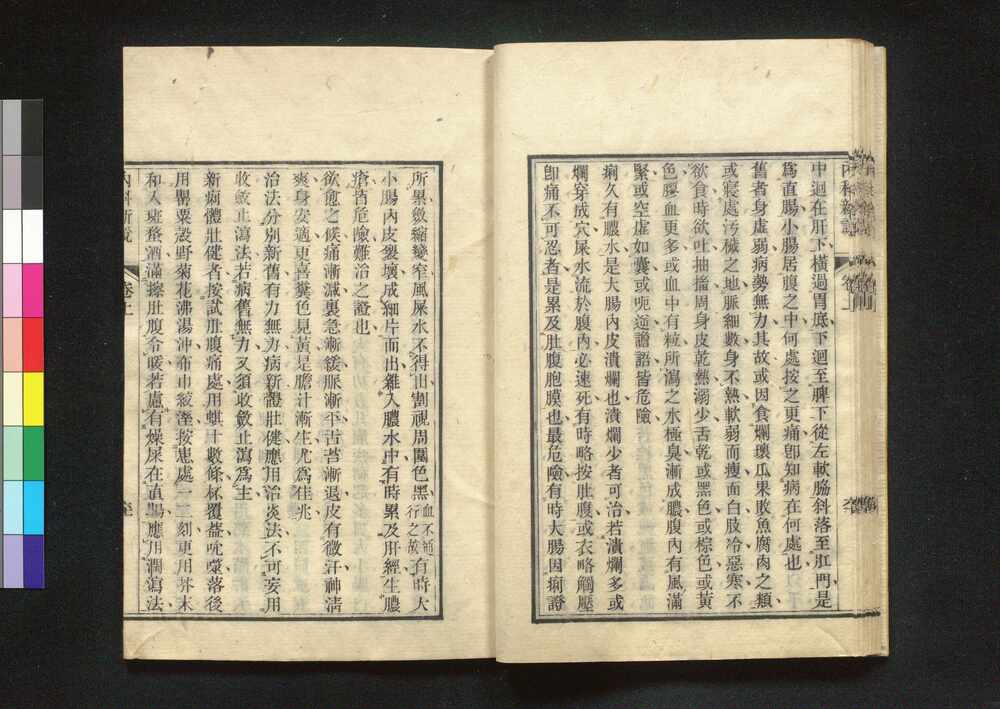 內科新說
卷上
中迴在肝下橫過胃底下迴至脾下從左軟脇斜落至肛門是
爲直腸小腸居腹之中何處按之更痛卽知病在何處也
舊者身虛弱病勢無力其故或因食爛壞瓜果敗魚腐肉之類
或寢處污穢之地脈細數身不熱軟弱而瘦面白肢冷惡寒不
欲食時欲吐抽搐周身皮乾熱溺少舌乾或黑色或棕色或黃
色膠血更多或血中有粒所瀉之水極臭漸成膿腹內有風滿
緊或空虛如囊或呃逆譫語皆危險
痢久有膿水是大腸內皮潰爛也潰爛少者可治若潰爛多或
爛穿成穴屎水流於腹內必速死有時略按肚腹或衣略觸壓
卽痛不可忍者是累及肚腹胞膜也最危險有時大腸因痢證
所累斂縮變窄風屎水不得出割視周圍色黑血不通行之故有時大
小腸內皮裂壞成細片而出雜入膿水中有時累及肝經生膿
瘡皆危險難治之證也
欲愈之候痛漸減裏急漸緩脈漸平舌苔漸退皮有微汗神清
爽身安適更喜糞色見黃是膽汁漸生尤爲佳兆
治法分別新舊有力無力病新體壯健應用治炎法不可妄用
收斂止瀉法若病舊無力又須收斂止瀉爲主
新病體壯健者按試肚腹痛處用蜞廿數條杯覆蓋吮囓落後
用罌粟殼野菊花沸湯沖布巾絞溼按患處一二刻更用芥末
和入斑蝥酒滿擦肚腹令暖若慮有燥屎在直腸應用潤瀉法
內科新說
卷上